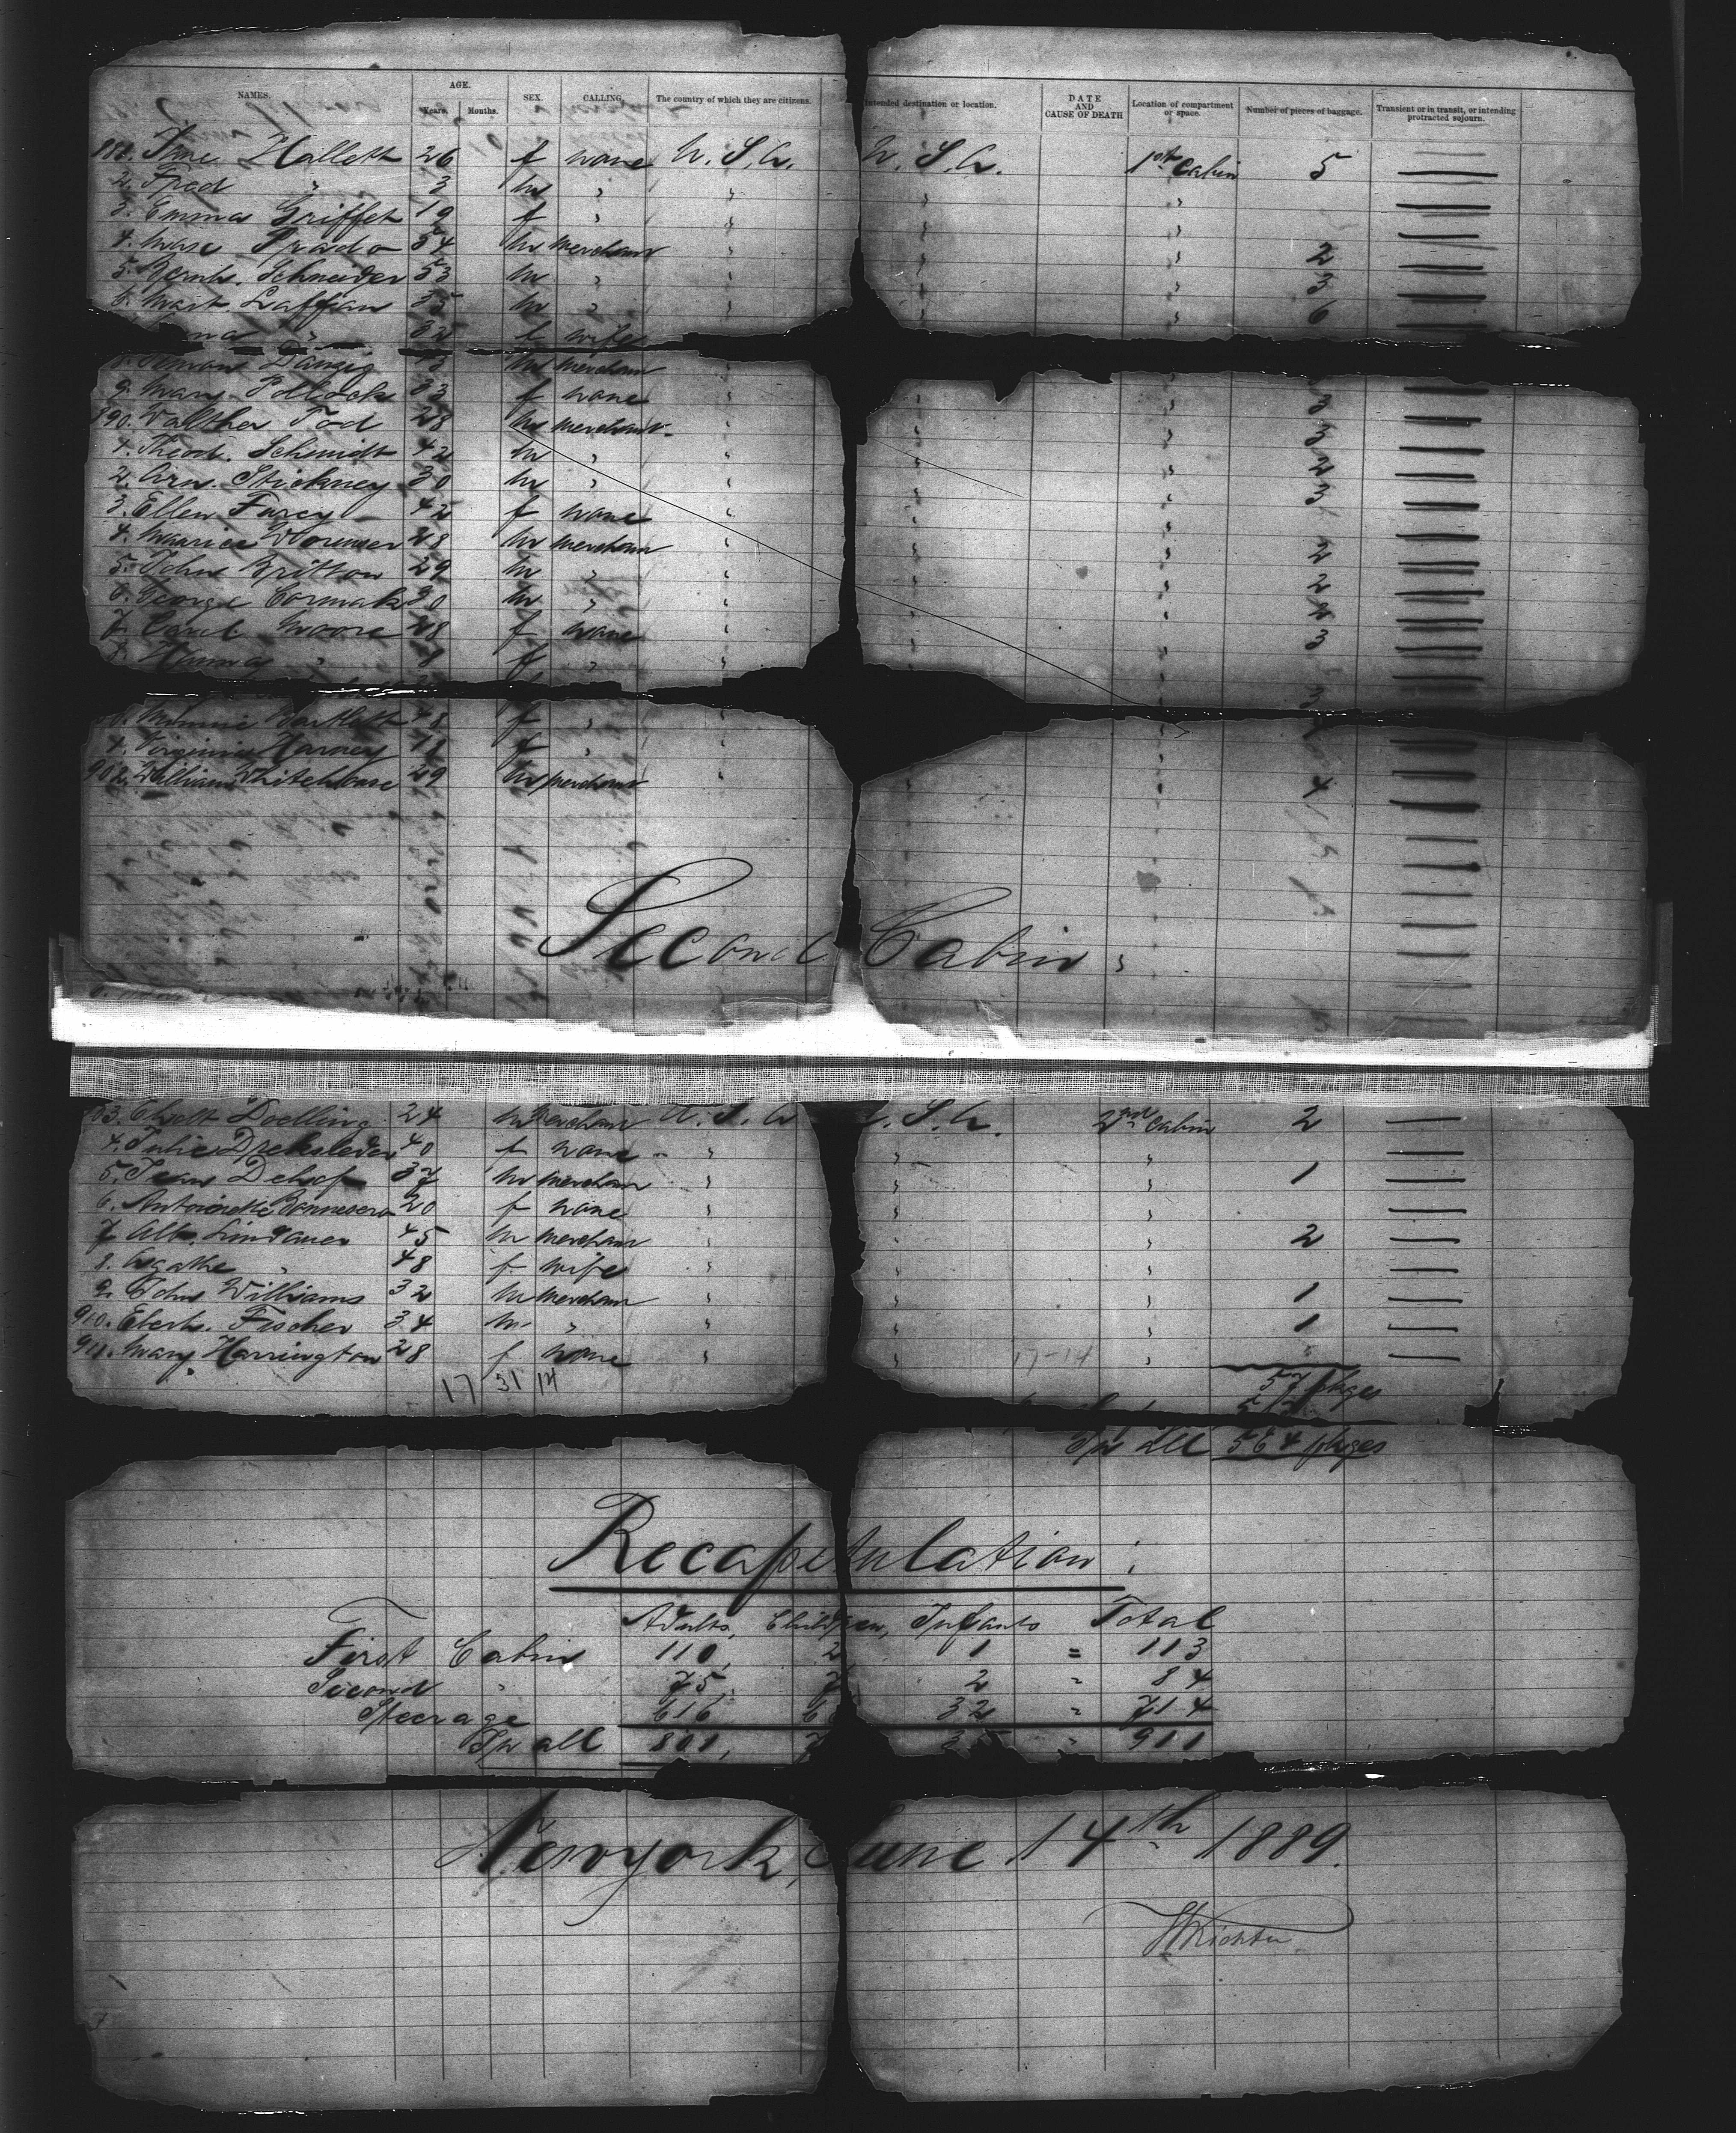 NAMES. AGE. Years. Months. SEX. CALLING. The country of which they are citizens. Intended destination or location. DATE AND CAUSE OF DEATH Location of compartment or space. Number of pieces of baggage. Transient or in transit, or intending protracted sojourn.
Hallett 26 f none U. S. A. U. S. A. 1st Cabin 5
2. Fred " 3 m "
3. Emma Griffet 19 f "
4. Prado 54 m merchant 2
5. Schneider 53 m " 3
6. Laffan 35 m " 6
32 f wife
8. Simon Danzig m merchant
9. Mary Pollock 33 f none 3
890. Walther Tod 28 m merchant 3
1. Theod. Schmidt 42 m " 2
2. Arn. Stickney 30 m " 3
3. Ellen Furey 42 f none
4. Maurice Wormser 28 m merchant 2
5. John Britton 29 m " 2
6. George Cormak 30 m " 2
7. Moore 28 f none 3
8. Hanna " 8 f "
3
Minnie Bartlett 48 f "
1. Virginia Harney 18 f "
902. William Whitehouse 29 m merchant 4
Second Cabin
Doelling 24 m merchant U. S. A. U. S. A. 2nd Cabin 2
4. Julie 40 f none "
5. Jean 37 m merchant " 1
6. Antoinette 20 f none "
7. Alb. Lindauer 45 m merchant " 2
8. Agathe " 48 f wife "
9. John Williams 32 m merchant " 1
910. Eberh. Fischer 34 m " " 1
911. Mary Harrington 28 f none "
17 31 14 17-14 pkges
In all 564 pkges
Recapitulation:
Adults, Children, Infants Total
First Cabin 110, 2 1 = 113
Second " 75, 7 2 " 84
Steerage 616 32 " 714
In all 801, 35 " 911
Newyork, June 14th 1889.
Richter